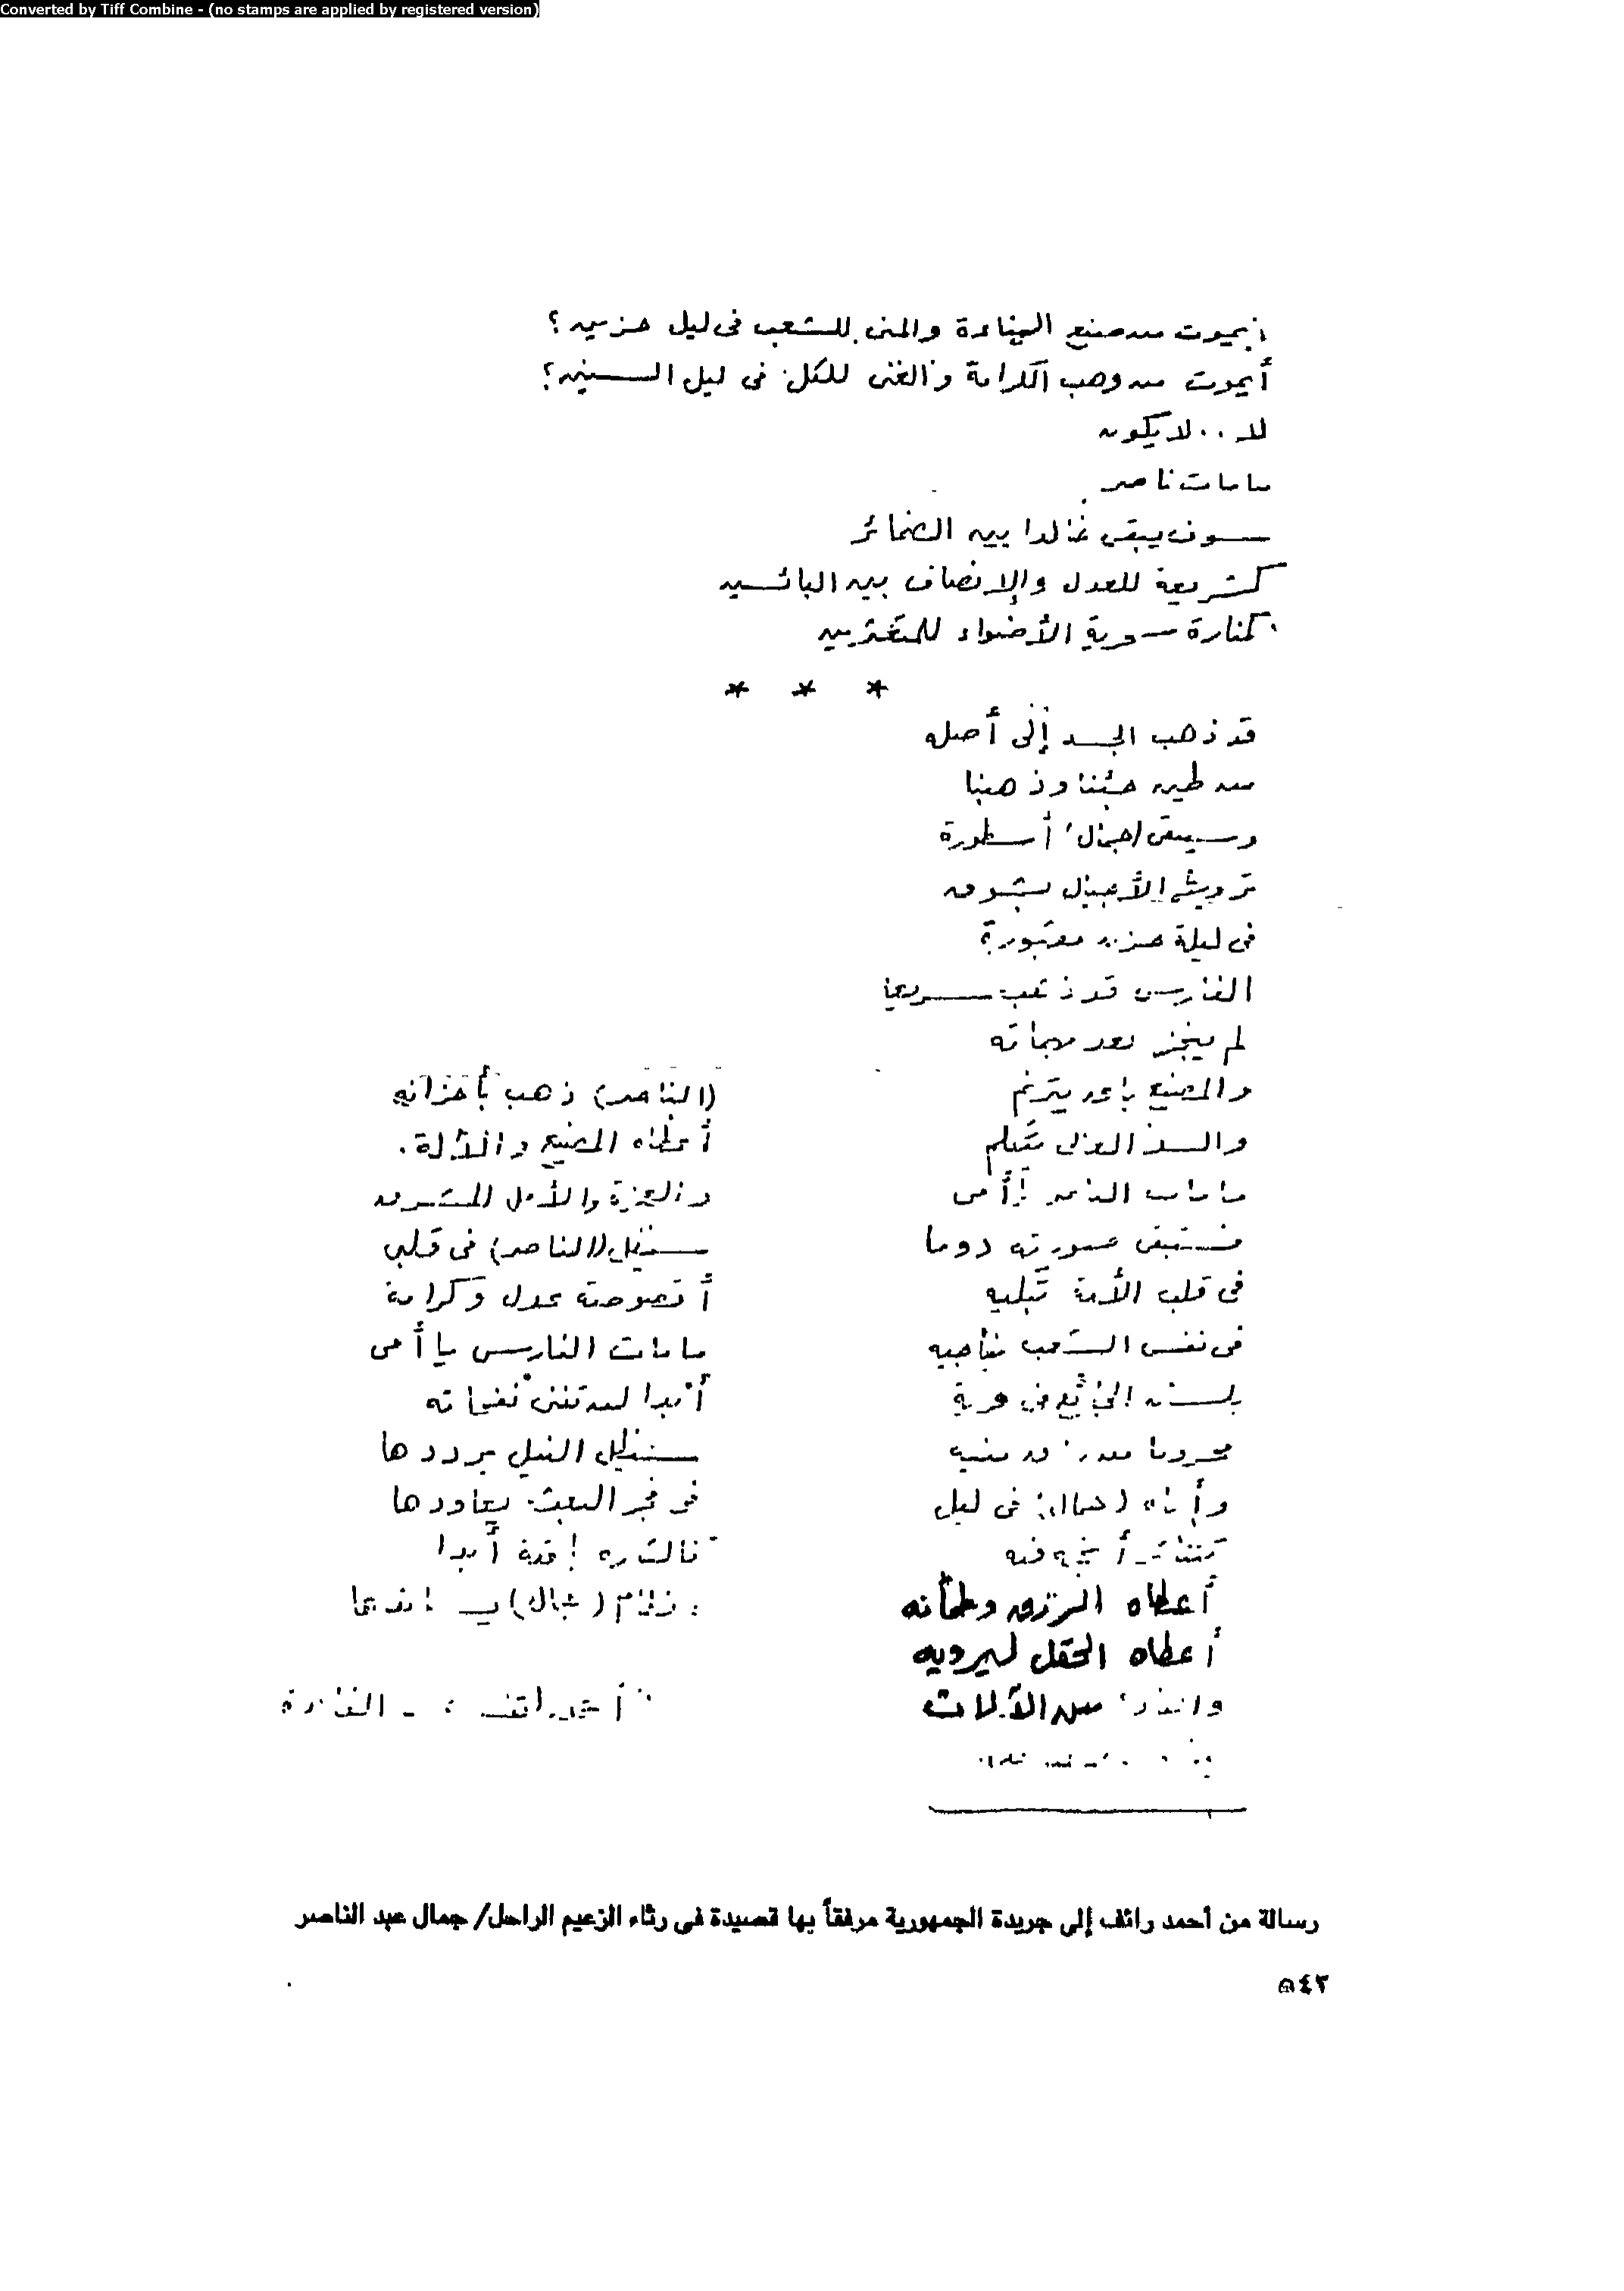 Converted by Tiff Combine - (no stamps are applied by registered version)
أيموت من صنع الهناءة والمنى للشعب فى ليل حزين؟
أيموت من وهب الكرامة والغنى للكل فى ليل السنين؟
لا .. لا يكون
ما مات ناصر
سوف يبقى خالدا بين الضمائر
كشريعة للعدل والإنصاف بين البائسين
كمنارة سحرية الأضواء للمتعثرين
* * *
قد ذهب الجسد إلى أصله
من طين جئنا وذهبنا
وسيبقى (جمال) أسطورة
ترويها الأجيال بشوق
فى ليلة حزن مقبورة
الفارس قد ذهب سريعا
لم ينجز بعد مهماته
والمصنع باق يترنم
والسد العالى يتكلم
ما مات الناصر يا أمى
فستبقى صورته دوما
فى قلب الأمة تبكيه
فى نفس الشعب تناجيه
بلسان الجائع فى
محروما من
وأتاه (جمال) فى ليل
أعطاه الرزق وطمأنه
أعطاه الحقل ليرويه
من الآلات
(الناصر) ذهب بأحزانه
أعطاه المصنع والآلة.
والعزة والأمل المشرق
سيظل (الناصر) فى قلبى
أقصوصة عدل وكرامة
ما مات الفارس يا أمى
أبدا لن تفنى نغماته
سيظل النيل يرددها
فى فجر البعث يعاودها
باقية أبدا
(جمال)
أحمد رائف - القاهرة
رسالة من أحمد رائف إلى جريدة الجمهورية مرفقاً بها قصيدة فى رثاء الزعيم الراحل/ جمال عبد الناصر
٥٤٢